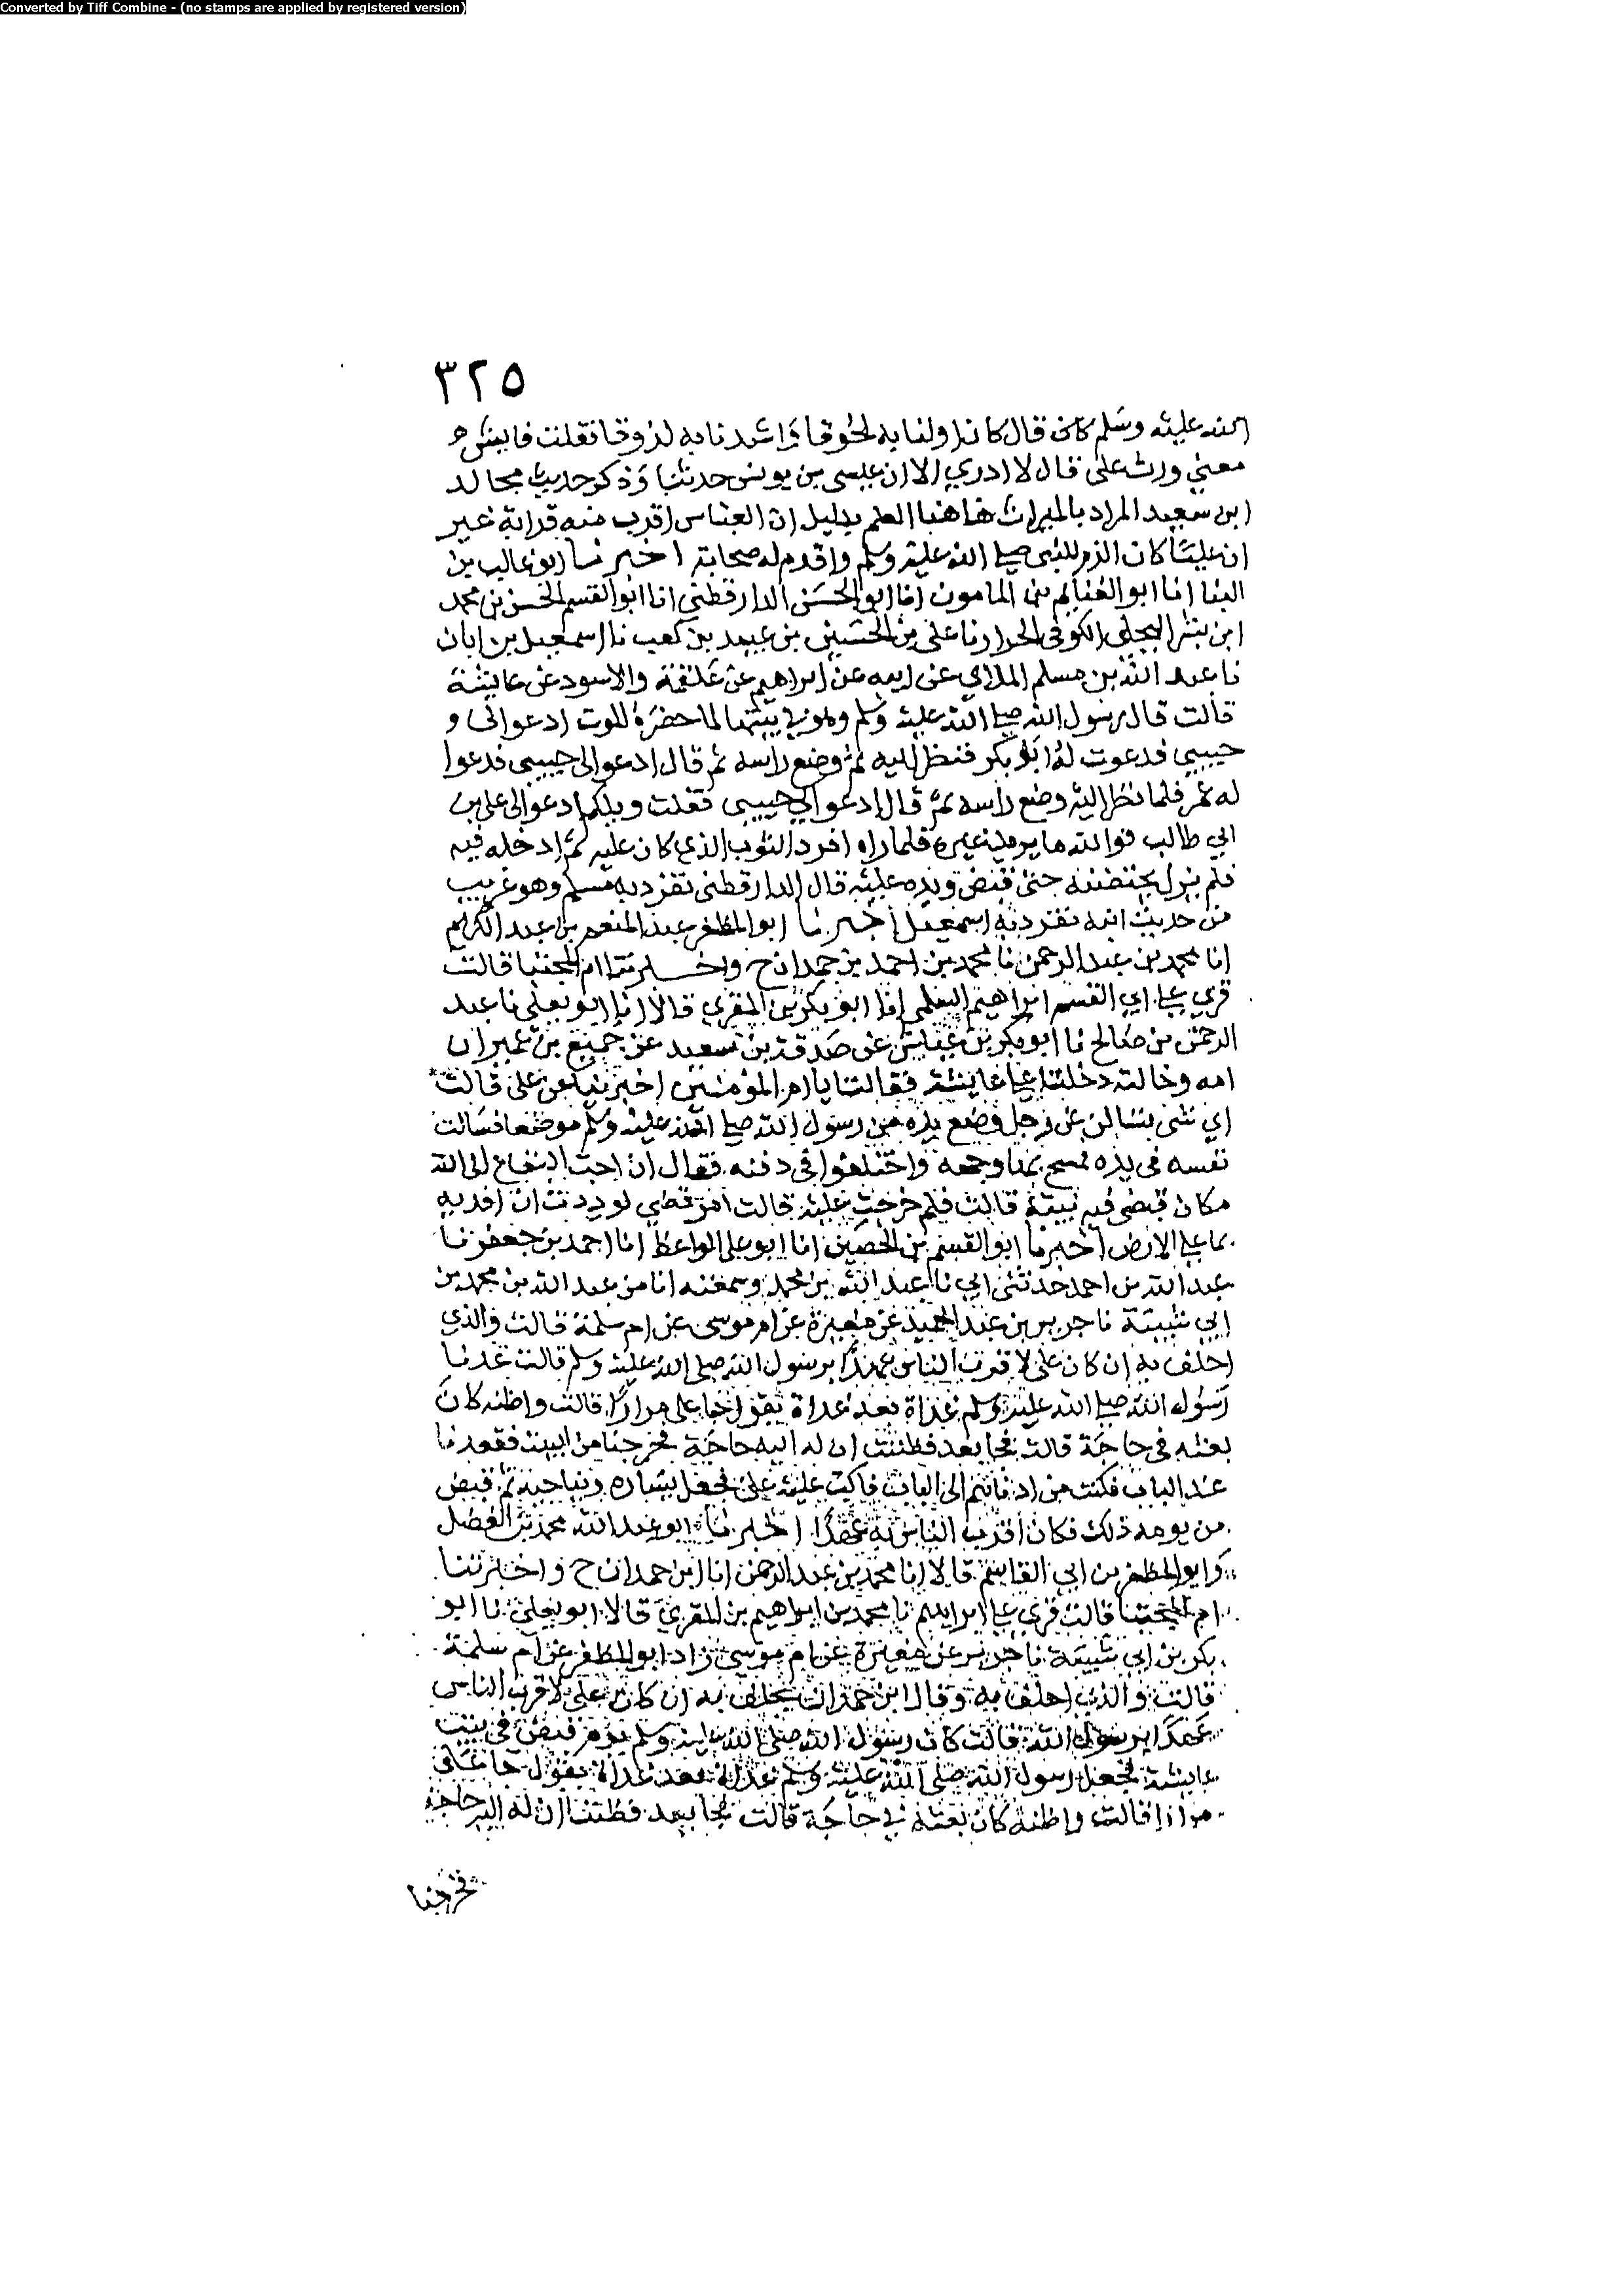 Converted by Tiff Combine - (no stamps are applied by registered version)
٣٢٥
الله عليه وسلم كان قال كان اولنا به لحوقا واشدنا به لزوقا فقلت فايش
معنى ورث علي قال لا ادري الا ان عيسى بن يونس حدثنا وذكر حديث مجالد
ابن سعيد المراد بالميراث هاهنا العلم بدليل ان العباس اقرب منه قرابة غير
ان عليا كان الزم للنبي صلى الله عليه وسلم واقدم له صحابة اخبرنا ابو غالب بن
البنا انا ابو الغنايم بن المامون انا ابو الحسن الدارقطني انا ابو القسم الحسن بن محمد
ابن بشر البجلي الكوفي الحرار نا علي بن الحسين بن عبيد بن كعب نا اسمعيل بن ابان
نا عبد الله بن مسلم الملاي عن ابيه عن ابراهيم عن علقمة والاسود عن عايشة
قالت قال رسول الله صلى الله عليه وسلم وهو في بيتها لما حضره الموت ادعوا لي و
حبيبي فدعوت له ابو بكر فنظر اليه ثم وضع راسه ثم قال ادعوا لي حبيبي فدعوا
له عمر فلما نظر اليه وضع راسه ثم قال ادعوا لي حبيبي فقلت ويلكم ادعوا لي علي بن
ابي طالب فوالله ما يريد غيره فلما راه افرد الثوب الذي كان عليه ثم ادخله فيه
فلم يزل يحتضنه حتى قبض ويده عليه قال الدارقطني تفرد به مسلم وهو غريب
من حديث ابنه تفرد به اسمعيل اخبرنا ابو المظفر عبد المنعم بن عبد الكريم
انا محمد بن عبد الرحمن نا محمد بن احمد بن حمدان ح واخبرتنا ام المجتبا قالت
قري على ابي القسم ابراهيم السلمي انا ابو بكر بن المقري قالا انا ابو يعلي نا عبد
الرحمن بن صالح نا ابو بكر بن عياش عن صدقة بن سعيد عن جميع بن عمير ان
امه وخالته دخلتا على عايشة فقالتا يا ام المؤمنين اخبرينا عن علي قالت
اي شي تسالن عن رجل وضع يده من رسول الله صلى الله عليه وسلم موضعا فسالت
نفسه في يده فمسح بها وجهه واختلفوا في دفنه فقال ان احب البقاع الى الله
مكان قبض فيه نبيه قالت فلم خرجت عليه قالت امر قضي لوددت ان افديه
بما على الارض اخبرنا ابو القسم بن الحصين انا ابو علي الواعظ انا احمد بن جعفر نا
عبد الله بن احمد حدثني ابي نا عبد الله بن محمد وسمعته انا من عبد الله بن محمد بن
ابي شيبة نا جرير بن عبد الحميد عن مغيرة عن ام موسى عن ام سلمة قالت والذي
احلف به ان كان علي لاقرب الناس عهدا برسول الله صلى الله عليه وسلم قالت عدنا
رسول الله صلى الله عليه وسلم غداة بعد غداة يقول جا علي مرارا قالت واظنه كان
بعثه في حاجة قالت فجا بعد فظننت ان له اليه حاجة فخرجنا من البيت فقعدنا
عند الباب فكنت من ادناهم الى الباب فاكب عليه علي فجعل يساره ويناجيه ثم قبض
من يومه ذلك فكان اقرب الناس به عهدا اخبرنا ابو عبد الله محمد بن الفضل
وابو المظفر بن ابي القاسم قالا انا محمد بن عبد الرحمن انا ابن حمدان ح واخبرتنا
ام المجتبا قالت قري على ابراهيم نا محمد بن ابراهيم بن المقري قالا ابو يعلي نا ابو
بكر بن ابي شيبة نا جرير عن مغيرة عن ام موسى زاد ابو المظفر عن ام سلمة
قالت والذي احلف به وقال ابن حمدان يحلف به ان كان علي لاقرب الناس
عهدا برسول الله قالت كان رسول الله صلى الله عليه وسلم يوم قبض في بيت
عايشة فجعل رسول الله صلى الله عليه وسلم غداة بعد غداة يقول جا علي
مرارا قالت واظنه كان بعثه في حاجة قالت فجا بعد فظننا ان له اليه حاجة
فخرجنا